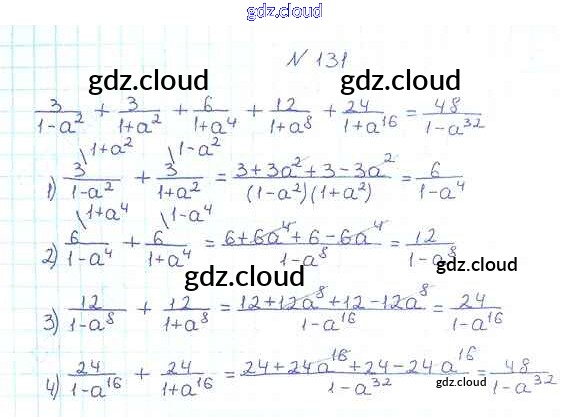 gdz.cloud
N 131
gdz.cloud gdz.cloud
3/(1-a²) + 3/(1+a²) + 6/(1+a⁴) + 12/(1+a⁸) + 24/(1+a¹⁶) = 48/(1-a³²)
1) 3\1+a²/(1-a²) + 3\1-a²/(1+a²) = (3+3a²+3-3a²)/((1-a²)(1+a²)) = 6/(1-a⁴)
2) 6\1+a⁴/(1-a⁴) + 6\1-a⁴/(1+a⁴) = (6+6a⁴+6-6a⁴)/(1-a⁸) = 12/(1-a⁸)
gdz.cloud
gdz.cloud
3) 12/(1-a⁸) + 12/(1+a⁸) = (12+12a⁸+12-12a⁸)/(1-a¹⁶) = 24/(1-a¹⁶)
4) 24/(1-a¹⁶) + 24/(1+a¹⁶) = (24+24a¹⁶+24-24a¹⁶)/(1-a³²) = 48/(1-a³²)
gdz.cloud
gdz.cloud